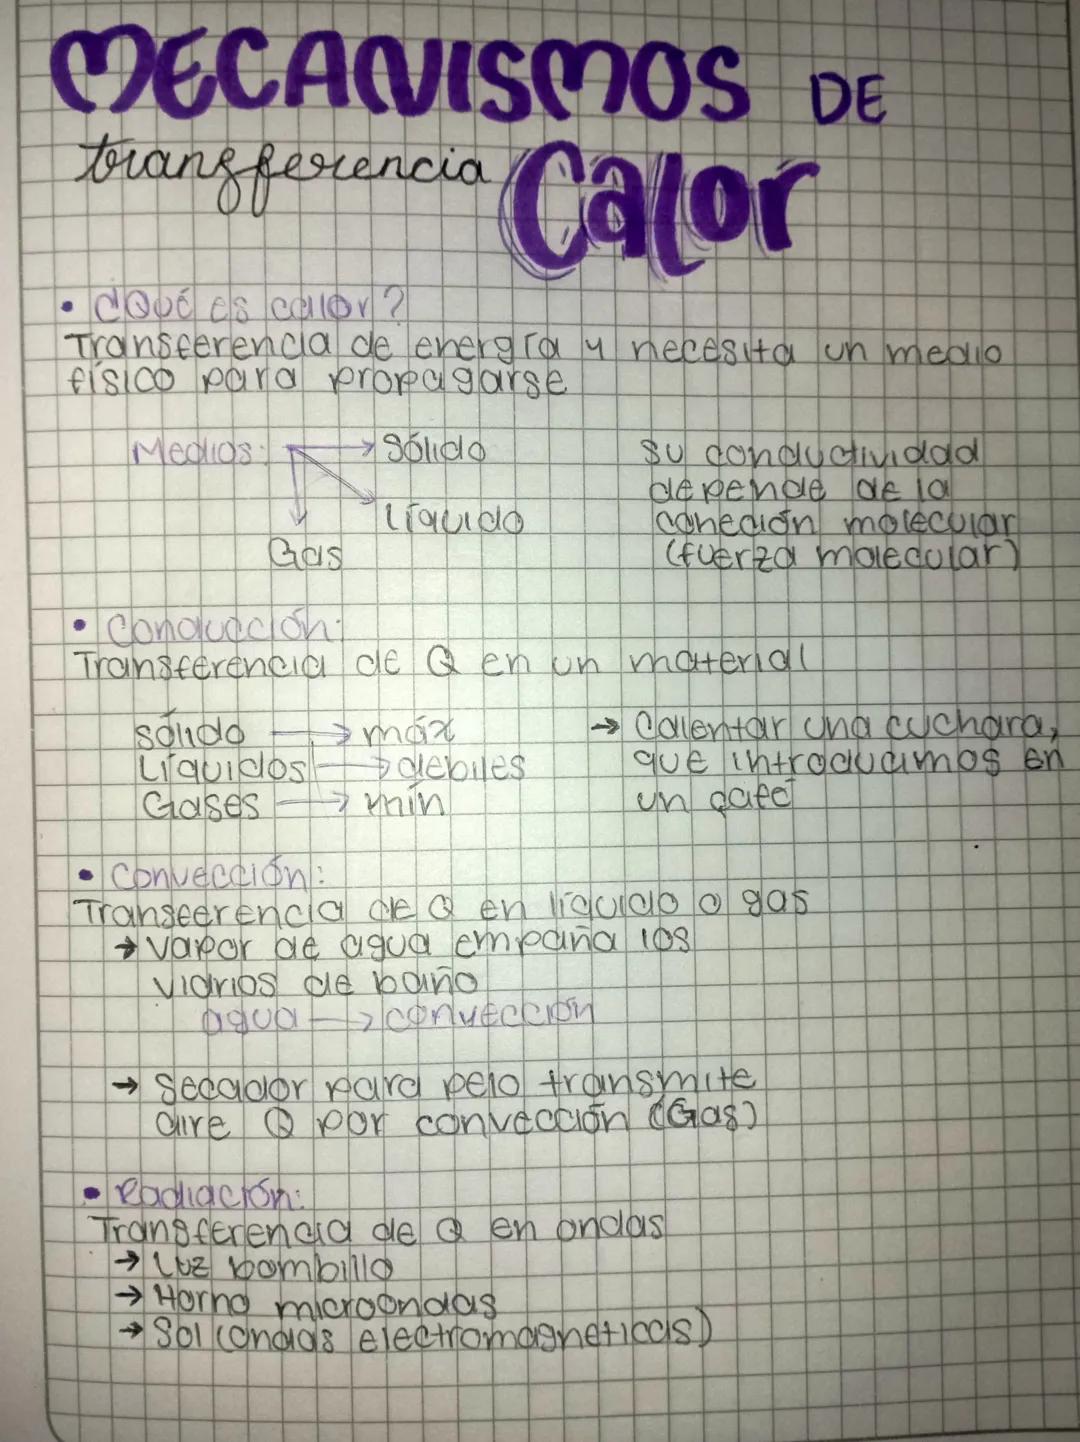 MECANISMOS DE
transferencia Calor
• ¿Qué es calor?
Transferencia de energía y necesita un medio
físico para propagarse
Medios: → Sólido
Líquido
Gas
su conductividad
depende de la
coheción molecular
(fuerza molecular)
• Conducción:
Transferencia de Q en un material
sólido → máx
Líquidos → débiles
Gases → mín
→ Calentar una cuchara,
que introducimos en
un café
• Convección:
Transferencia de Q en líquido o gas
→ Vapor de agua empaña los
vidrios de baño
agua → convección
→ Secador para pelo transmite
aire Q por convección (Gas)
• Radiación:
Transferencia de Q en ondas
→ Luz bombillo
→ Horno microondas
→ Sol (ondas electromagneticas)